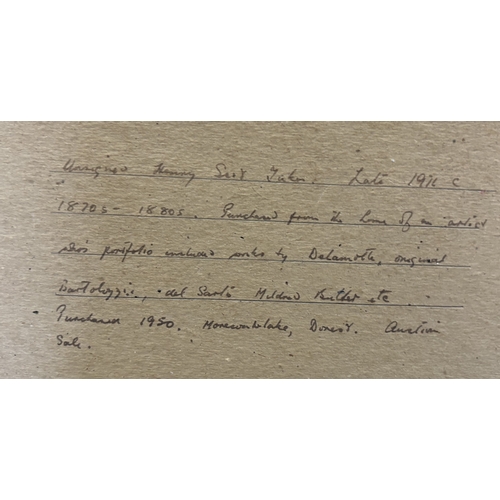 Unsigned Henry Scott Tuke. Late 19th C
1870s - 1880s. Purchased from the home of an artist
who's portfolio included works by Delamotte, original
Bartolozzi, del Sarto, Mildred Butler etc
Purchased 1950. Dorset. Auction
Sale.